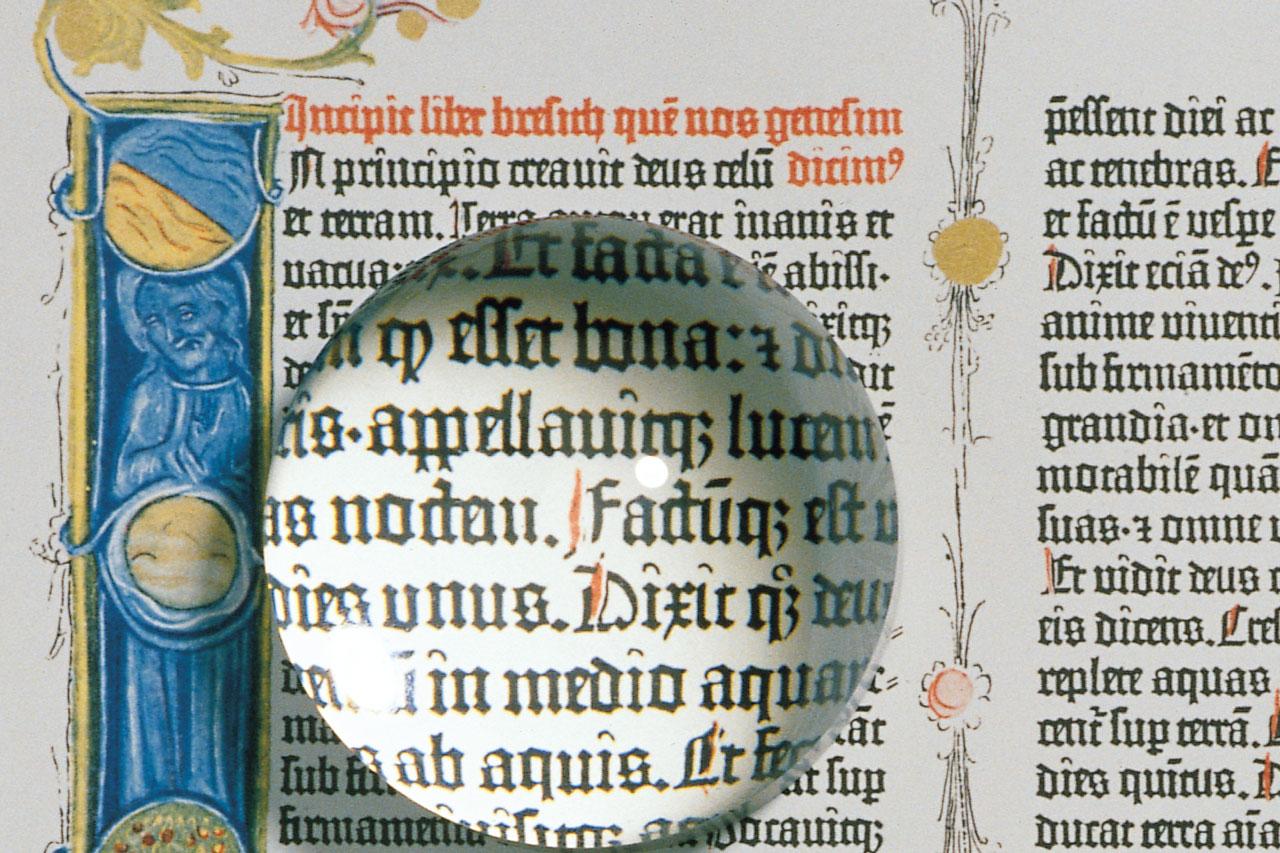 Incipit liber bresith quē nos genesim
In principio creauit deus celū dicimꝰ
et terram. Terra autem erat inanis et
uacua: abissi·
et sp̄
sub fir t sup
firmamentū
Et facta e
ꝙ esset bona: ⁊ di
is· appellauitqꝫ lucem
as noctem. Factūqꝫ est v
dies vnus. Dixit qꝫ deu
in medio aqua
s ab aquis. Et fec
p̄essent diei ac
ac tenebras.
et factū ē uespe
Dixit eciā deꝰ.
anime viuenti
sub firmamēto
grandia· et om
morabilē quā
suas· ⁊ omne v
Et vidit deus
eis dicens. Cre
replete aquas
cent̄ sup terrā.
dies quintus. D
ducat terra aīa